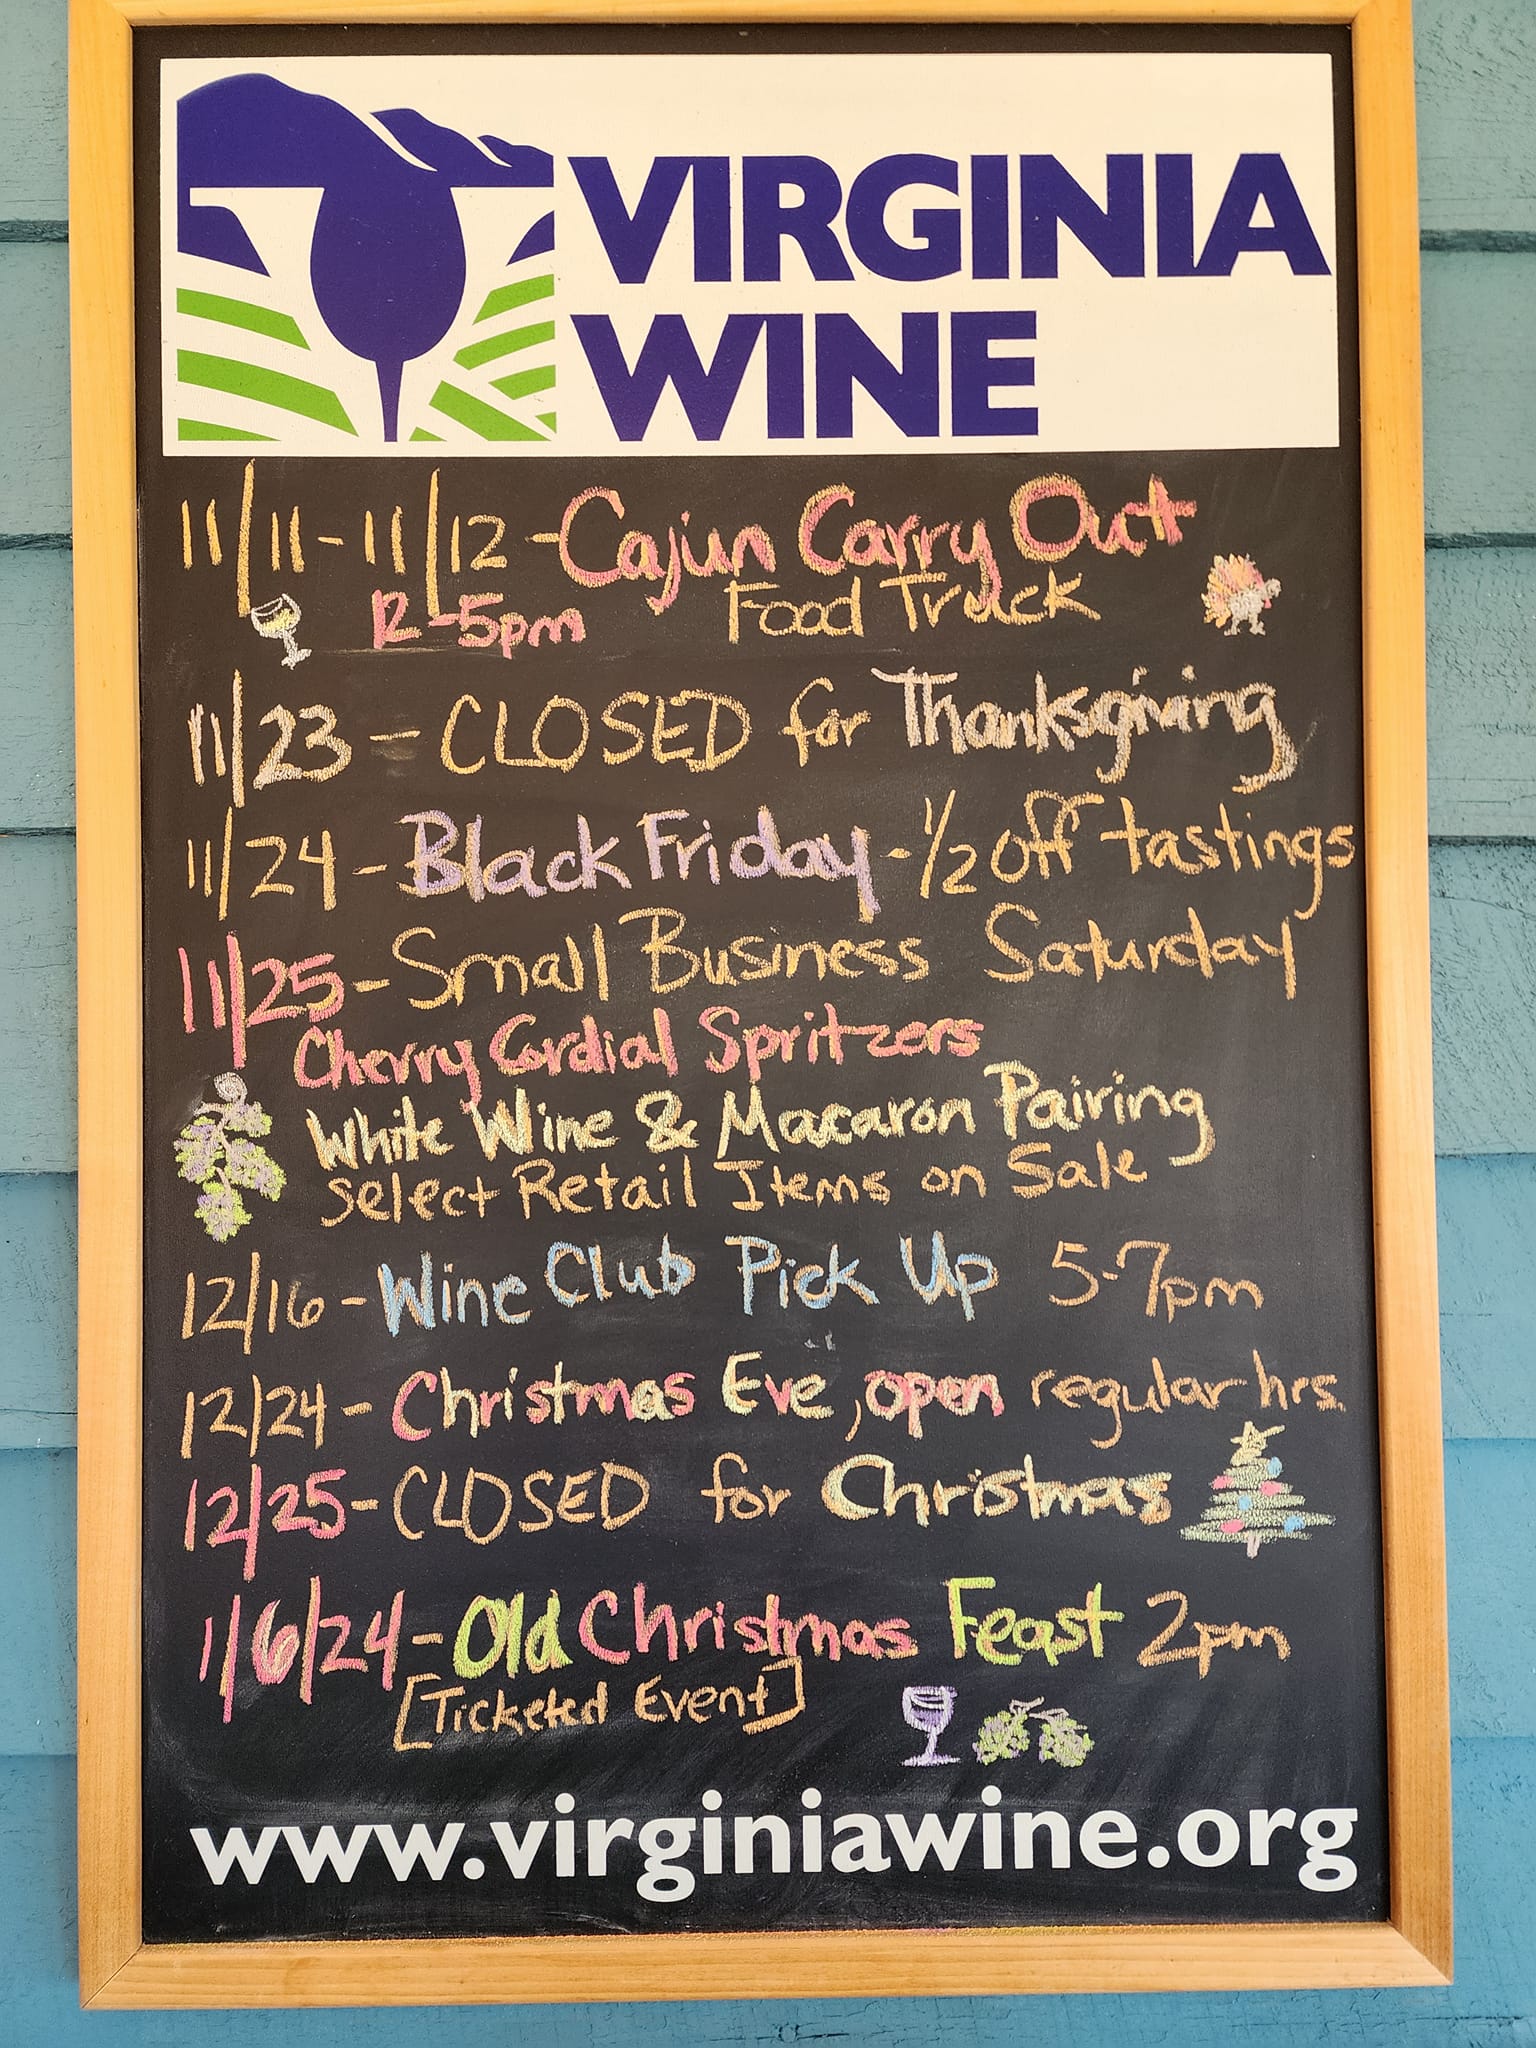 VIRGINIA
WINE
11/11-11/12 - Cajun Carry Out
12-5pm Food Truck
11/23 - CLOSED for Thanksgiving
11/24 - Black Friday - 1/2 off tastings
11/25 - Small Business Saturday
Cherry Cordial Spritzers
White Wine & Macaron Pairing
Select Retail Items on Sale
12/16 - Wine Club Pick Up 5-7pm
12/24 - Christmas Eve, open regular hrs.
12/25 - CLOSED for Christmas
1/6/24 - Old Christmas Feast 2pm
[Ticketed Event]
www.virginiawine.org